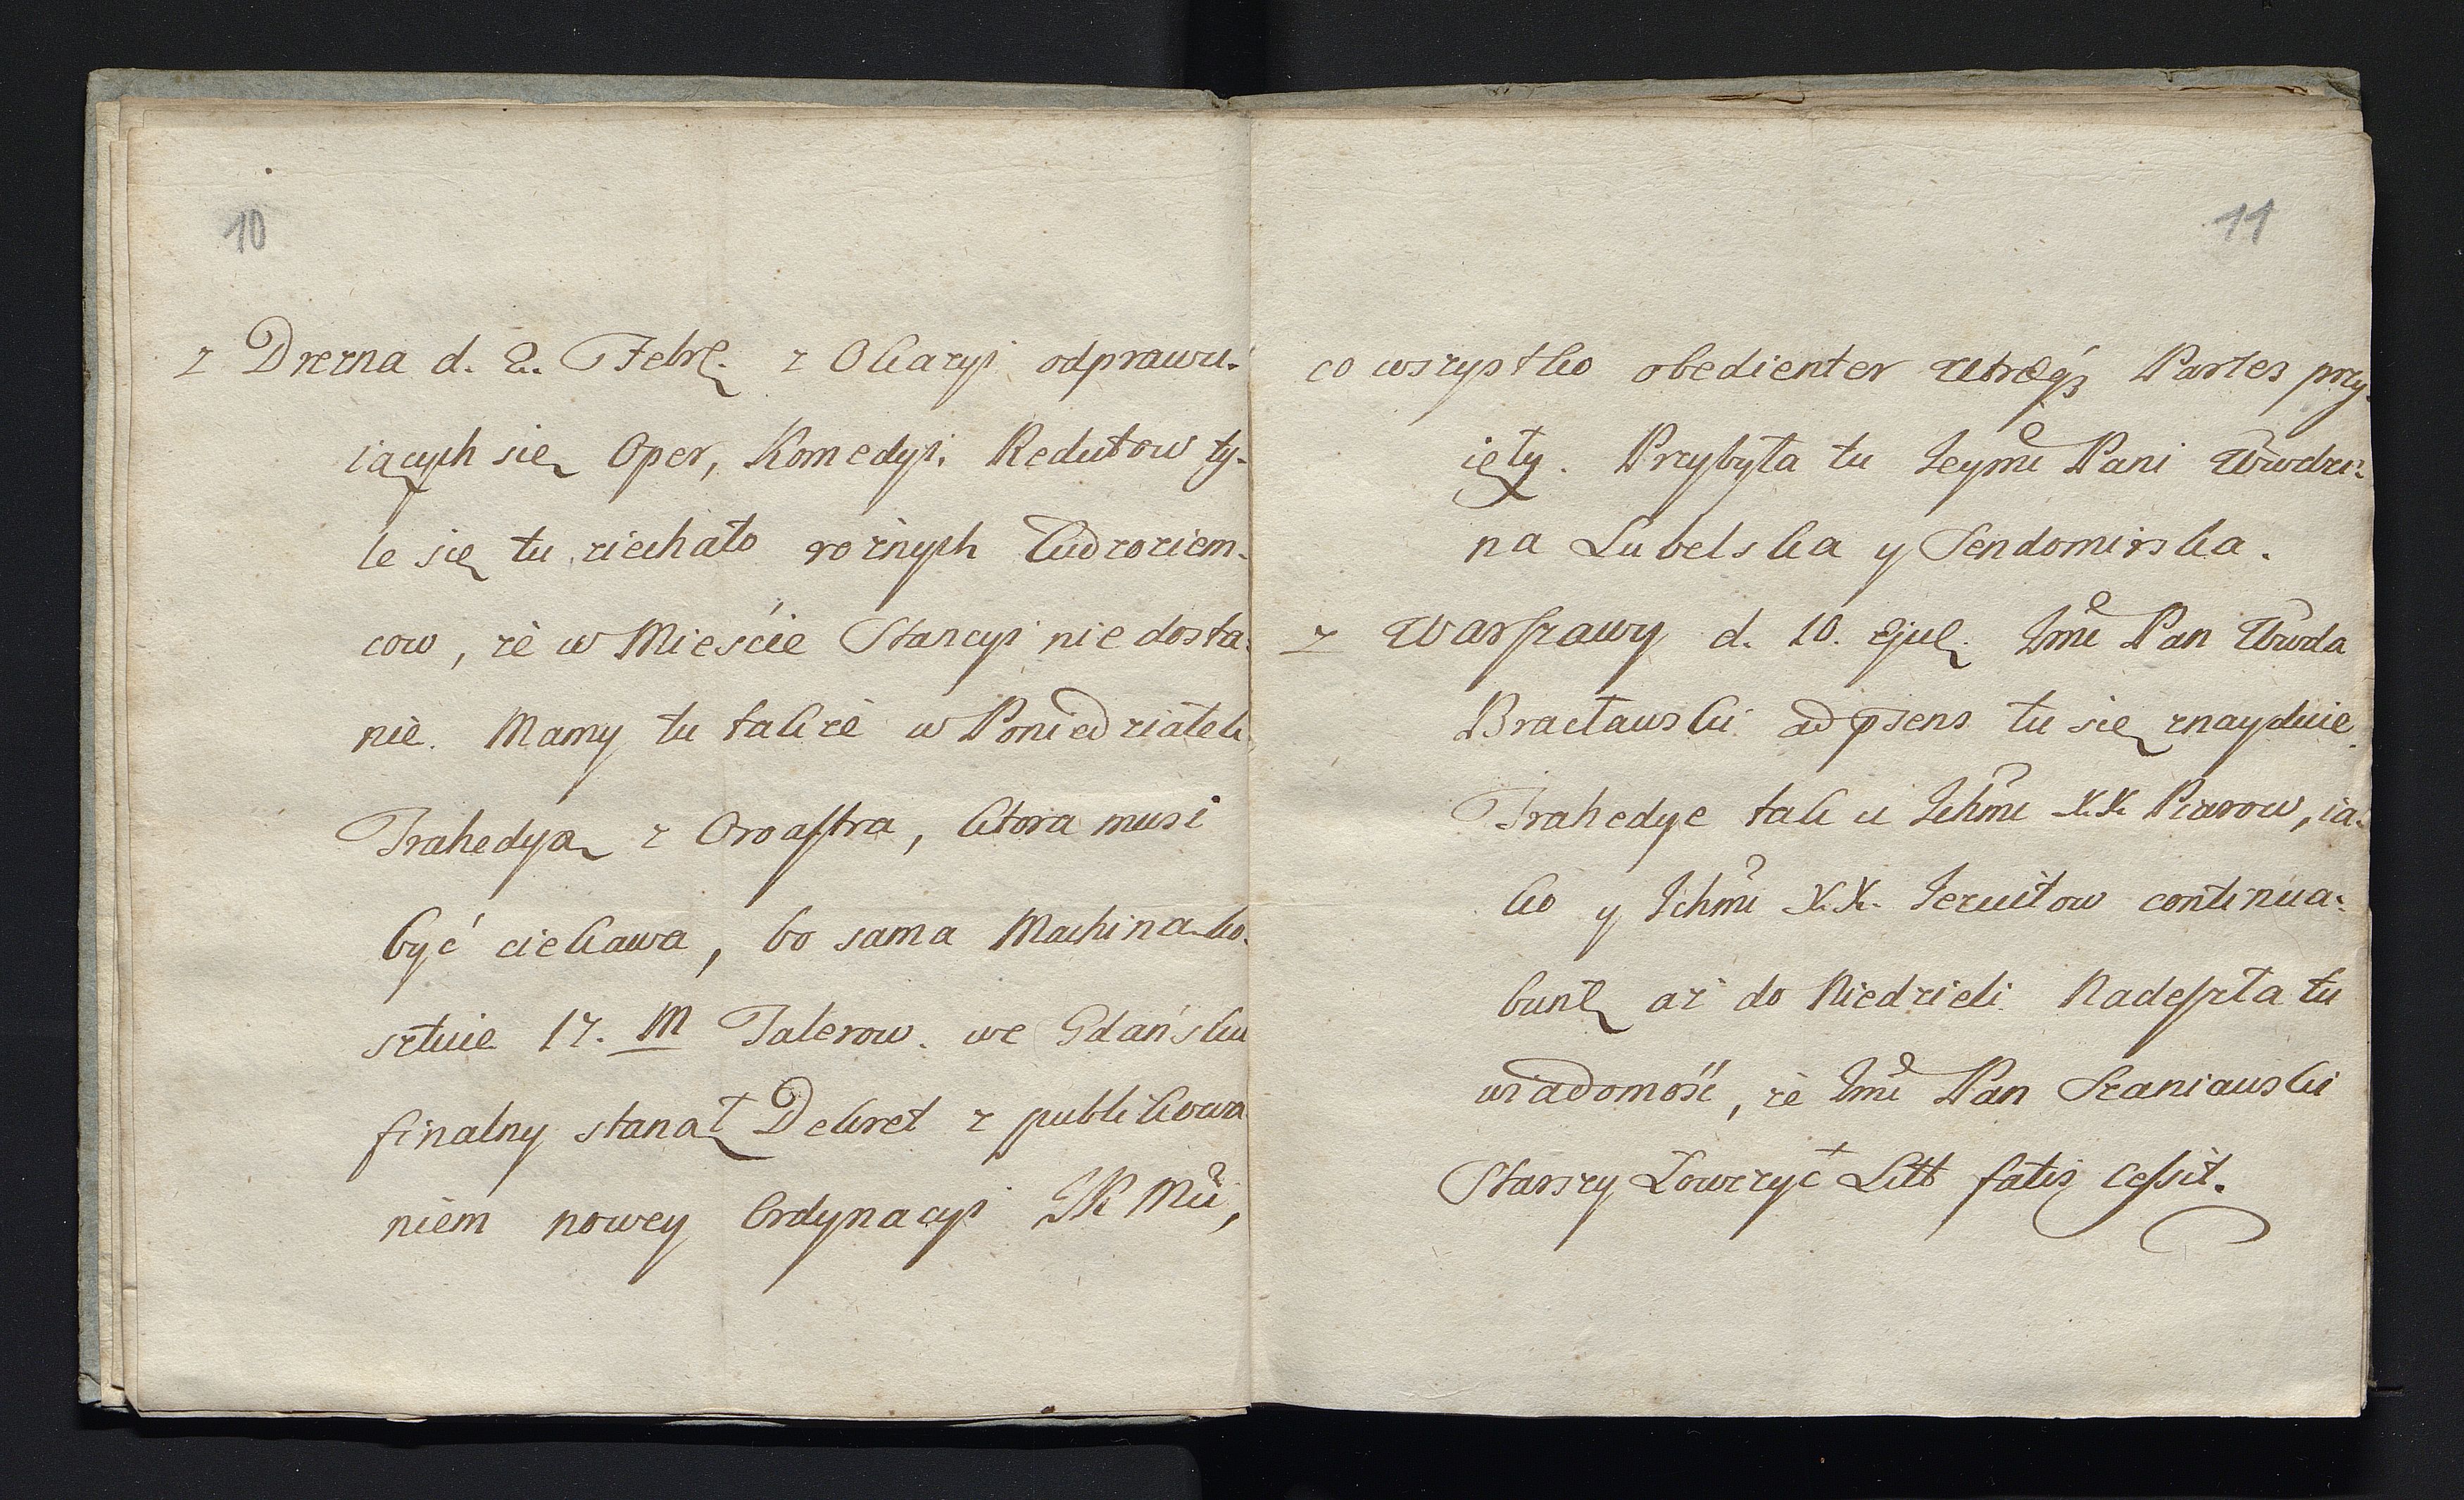 10
z Drezna d. 2. Febr. z Okazyi odprawu-
iących się Oper, Komedyi, Redutow ty-
le się tu ziechało rożnych Cudzoziem-
cow, że w Mieście Stancyi nie dosta-
nie. Mamy tu także w Poniedziałek
Trahedyą z Oroastra, ktora musi
być ciekawa, bo sama Machina ko-
sztuie 17. M Talerow. we Gdańsku
finalny stanął Dekret z publikowa
niem nowey Ordynacyi JK Mci,
11
co wszystko obedienter Partes przy-
ięły. Przybyła tu Jeymć Pani Wwdzi-
na Lubelska y Sendomirska.
z Warszawy d. 10. ejud. Jmć Pan Wwda
Bracławski ad psens tu się znayduie.
Trahedye tak u Ichmć X.X. Piarow, ia-
ko y Ichmć X.X. Jezuitow continua-
bunt aż do Niedzieli. Nadeszła tu
wiadomość, że Jmć Pan Szaniawski
Starszy Łowczyć Litt fatis cessit.